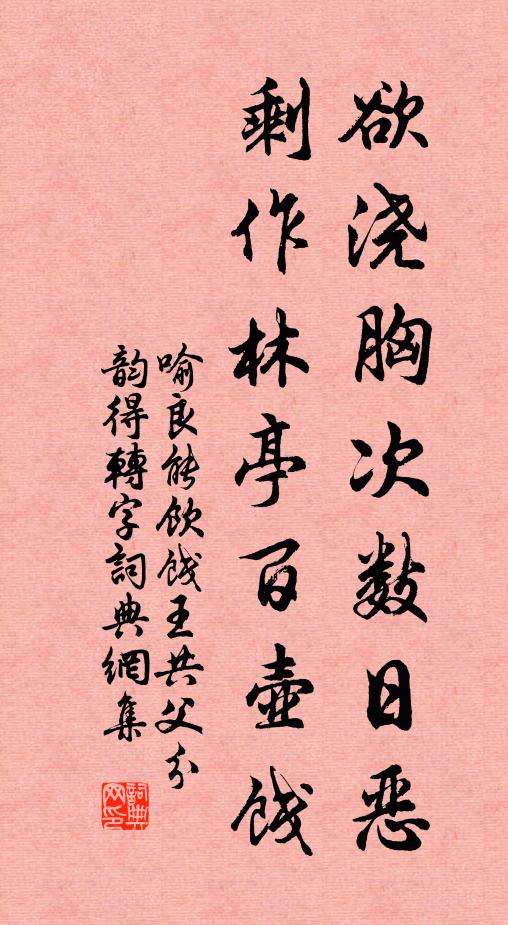 欲浇胸次数日恶
剩作林亭百壶饯
喻良能饮饯王共父分
韵得轉字詞典網集
詞典网印